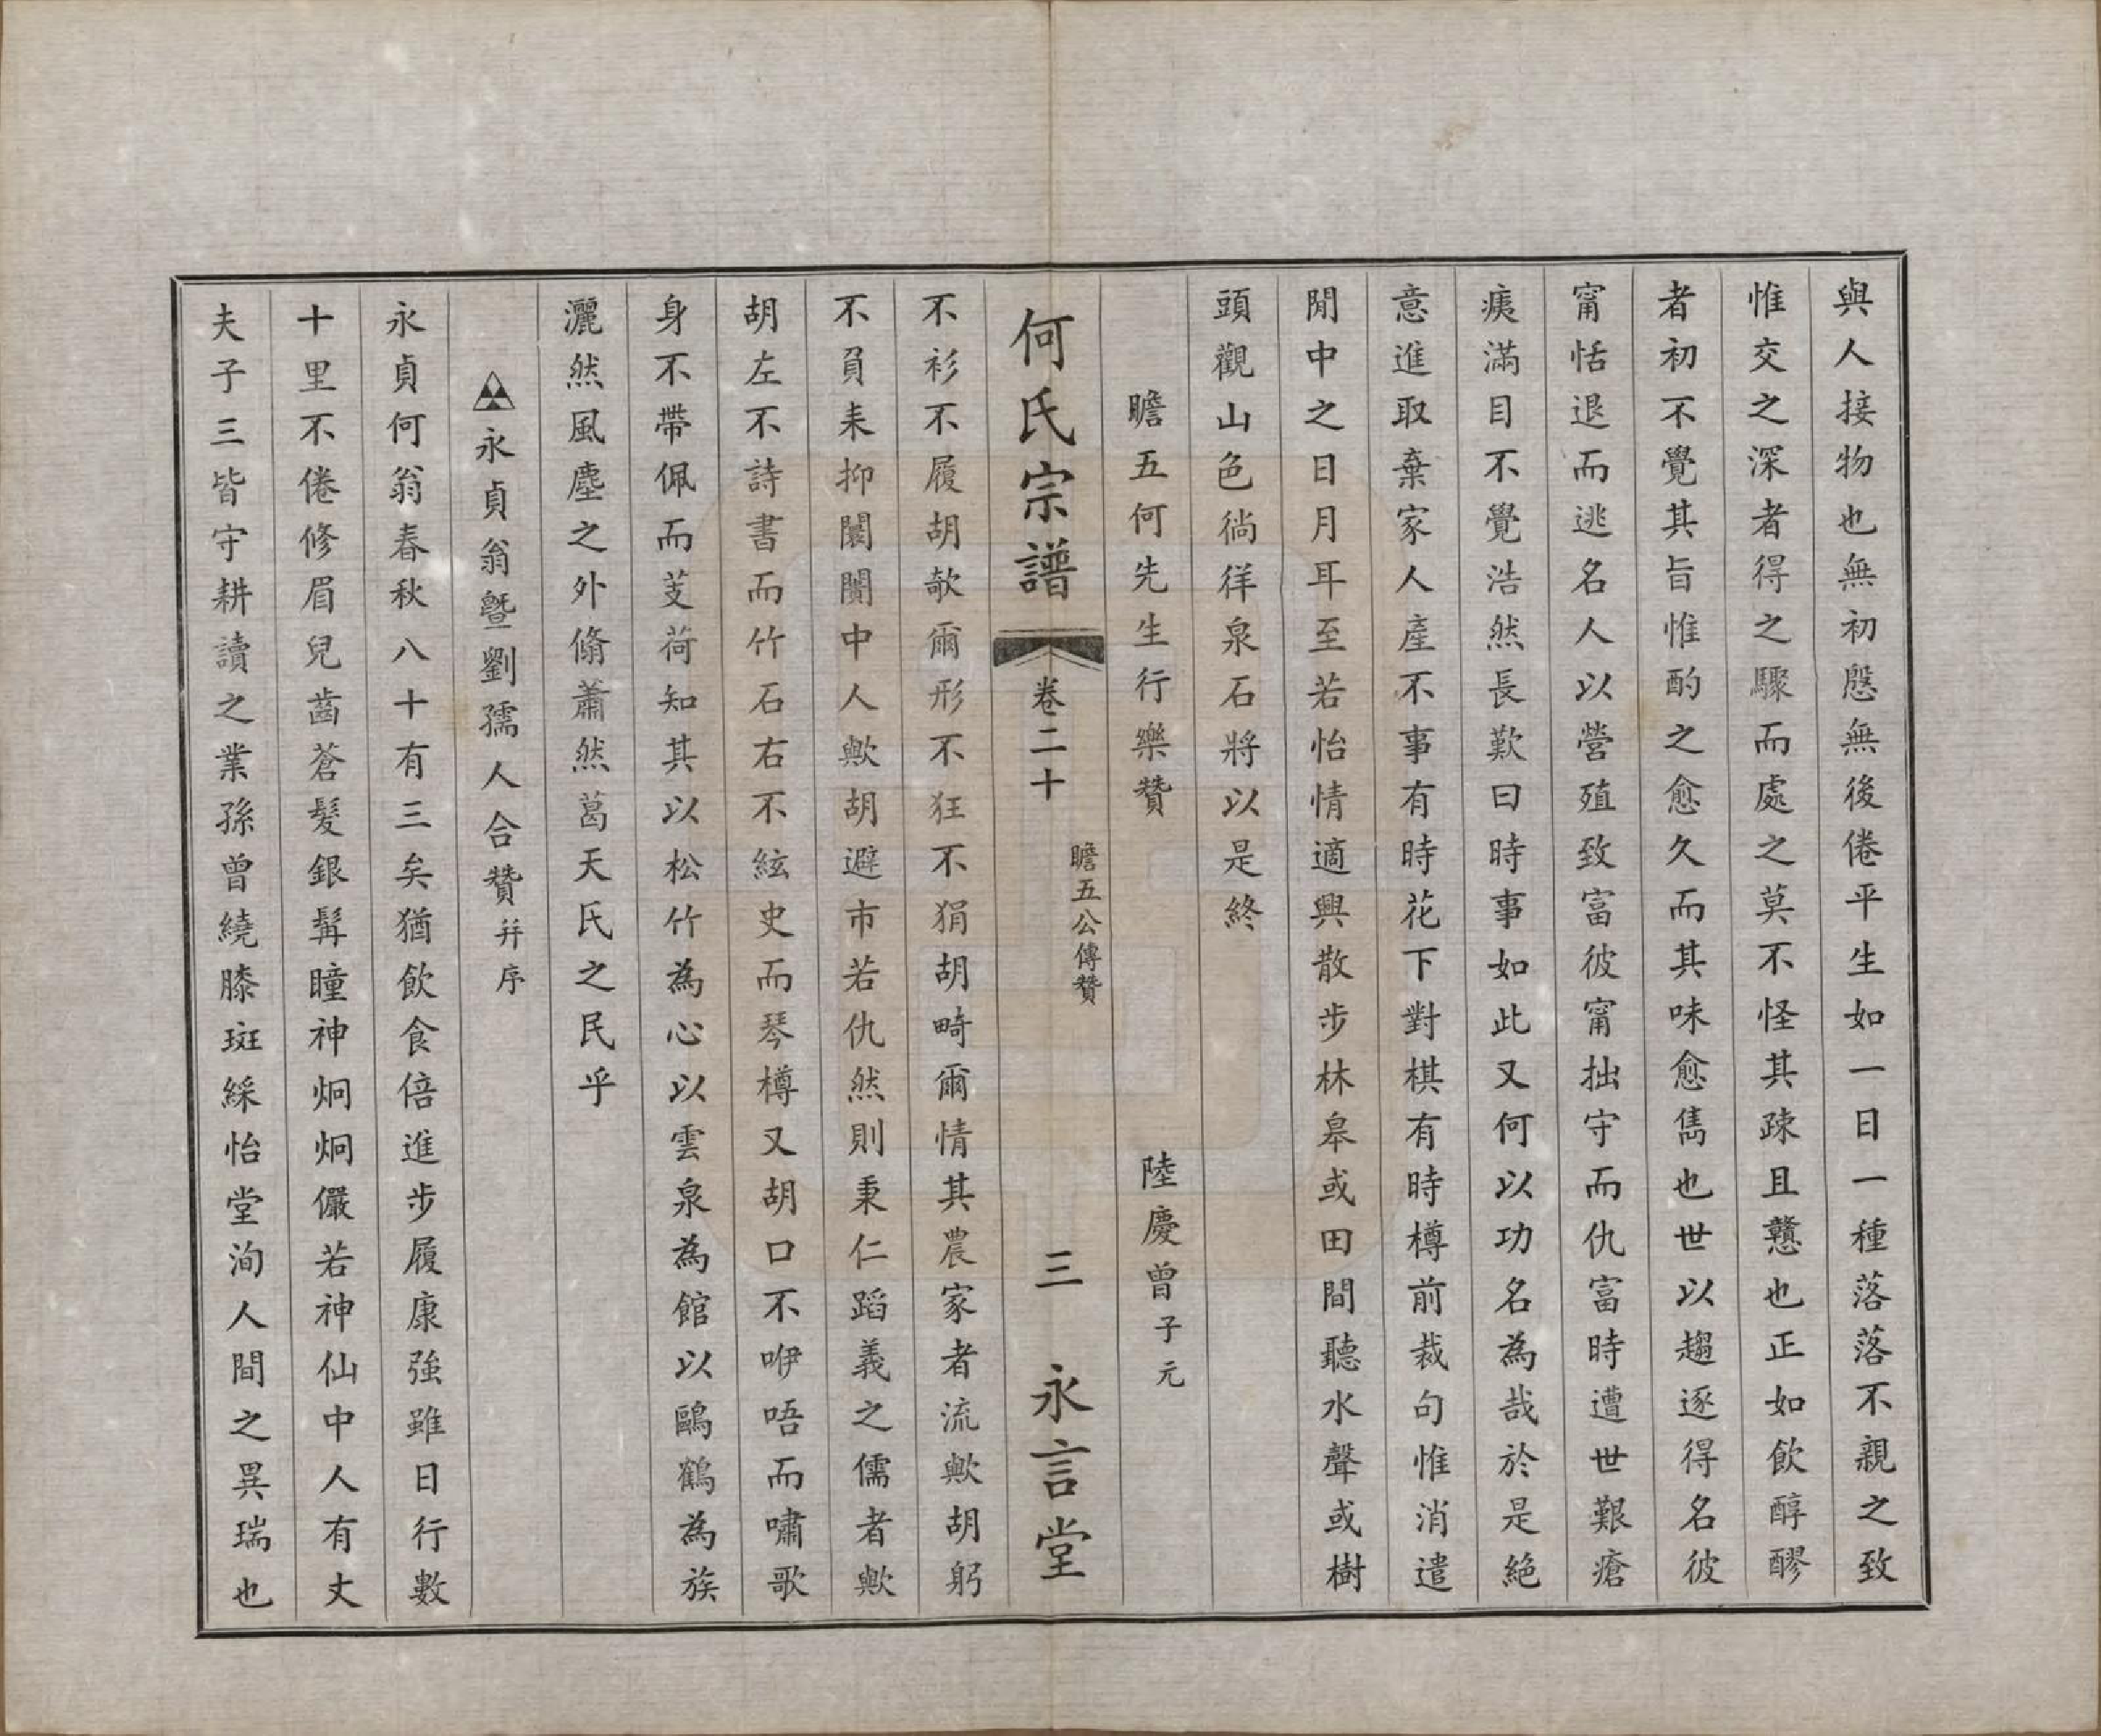 與人接物也無初慇無後倦平生如一日一種落落不親之致
惟交之深者得之驟而處之莫不怪其疎且戇也正如飲醇醪
者初不覺其旨惟酌之愈久而其味愈雋也世以趨逐得名彼
甯恬退而逃名人以營殖致富彼甯拙守而仇富時遭世艱瘡
痍滿目不覺浩然長歎曰時事如此又何以功名為哉於是絕
意進取棄家人產不事有時花下對棋有時樽前裁句惟消遣
閒中之日月耳至若怡情適興散步林皋或田間聽水聲或樹
頭觀山色徜徉泉石將以是終
瞻五何先生行樂贊 陸慶曾子元
何氏宗譜 卷二十 瞻五公傳贊 三 永言堂
不衫不履胡欹爾形不狂不狷胡畸爾情其農家者流歟胡躬
不負耒抑闤闠中人歟胡避市若仇然則秉仁蹈義之儒者歟
胡左不詩書而竹石右不絃史而琴樽又胡口不咿唔而嘯歌
身不帶佩而芰荷知其以松竹為心以雲泉為館以鷗鶴為族
灑然風塵之外翛蕭然葛天氏之民乎
永貞翁暨劉孺人合贊并序
永貞何翁春秋八十有三矣猶飲食倍進步履康強雖日行數
十里不倦修眉兒齒蒼髮銀髯瞳神炯炯儼若神仙中人有丈
夫子三皆守耕讀之業孫曾繞膝斑綵怡堂洵人間之異瑞也